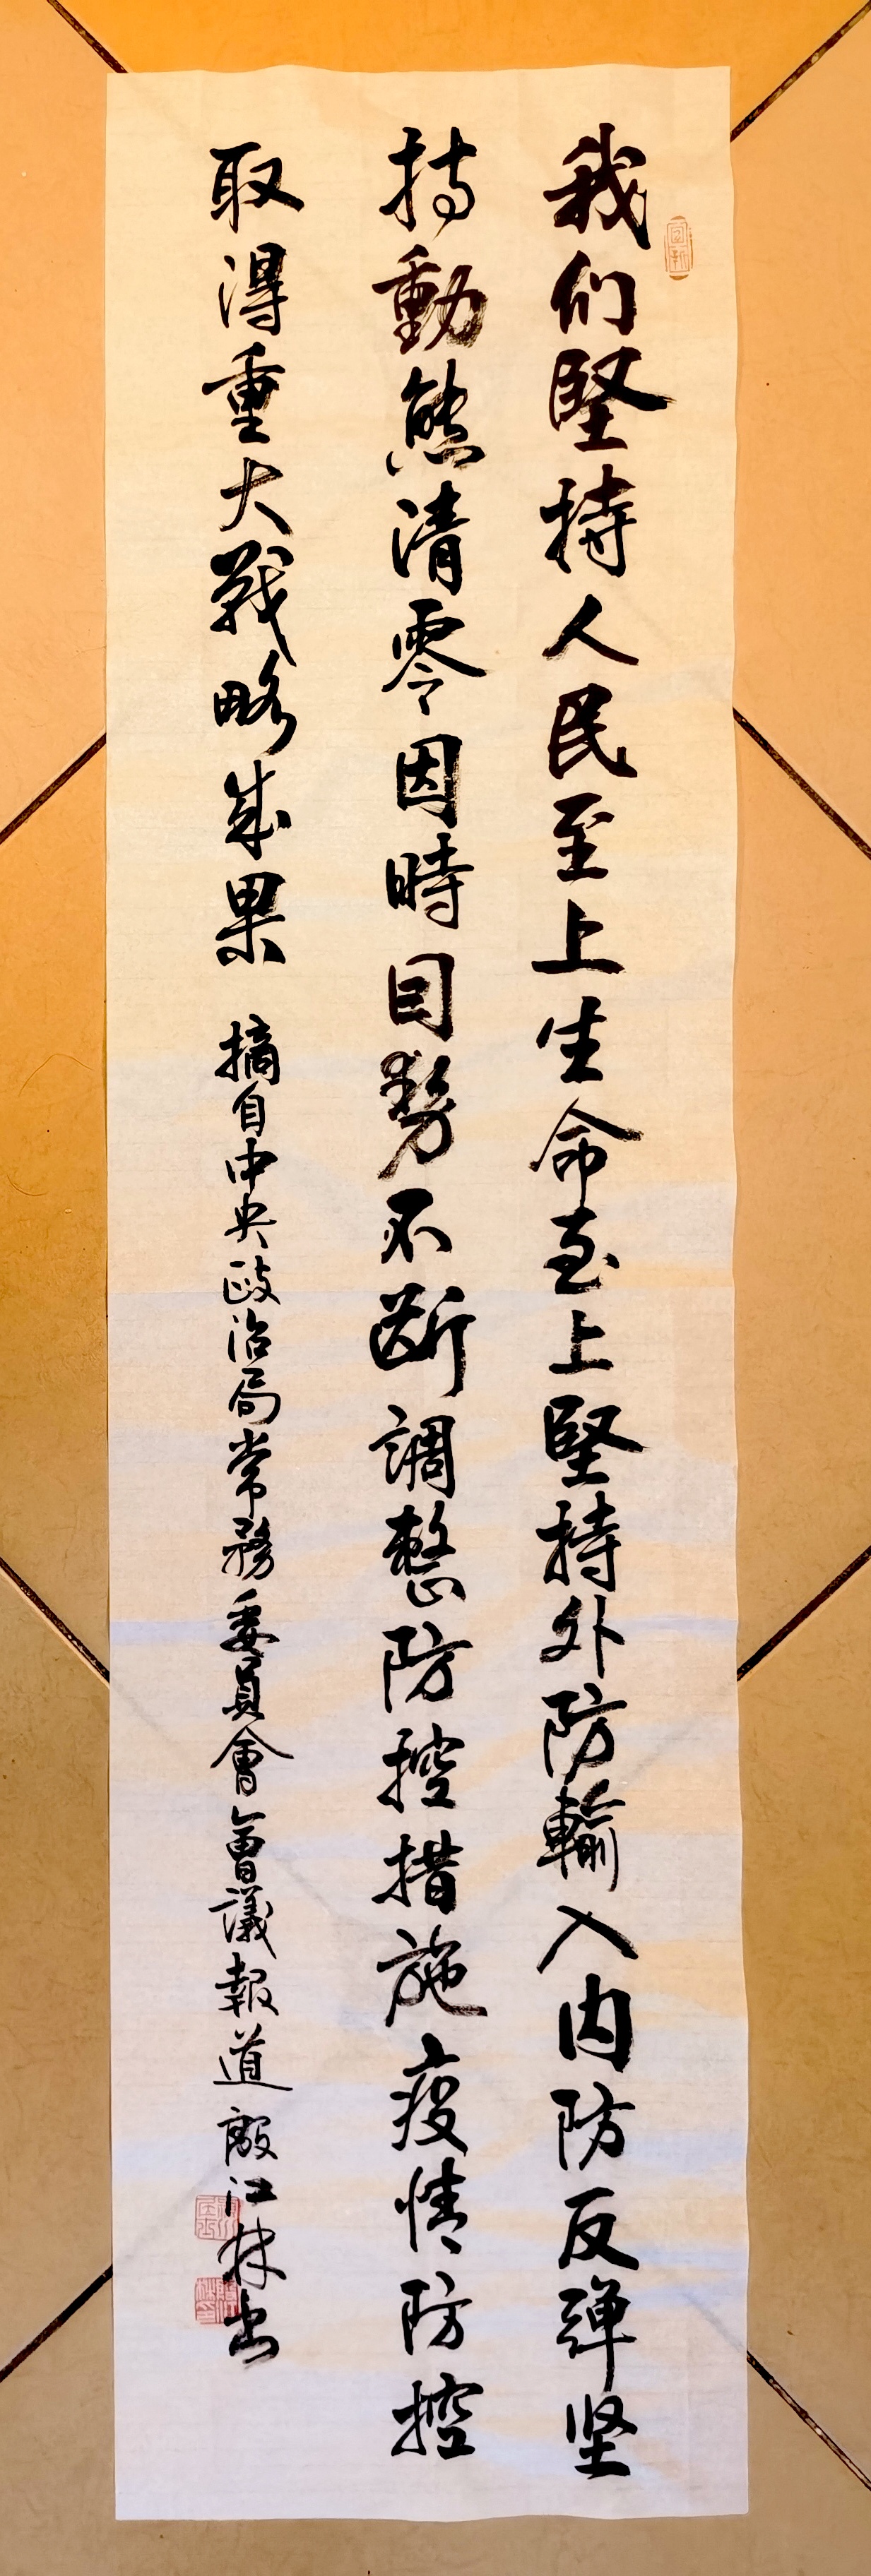 我们堅持人民至上生命至上堅持外防輸入内防反弹坚
持動態清零因時因势不断調整防控措施疫情防控
取得重大戰略成果 摘自中央政治局常務委員會會議報道 殷江林书